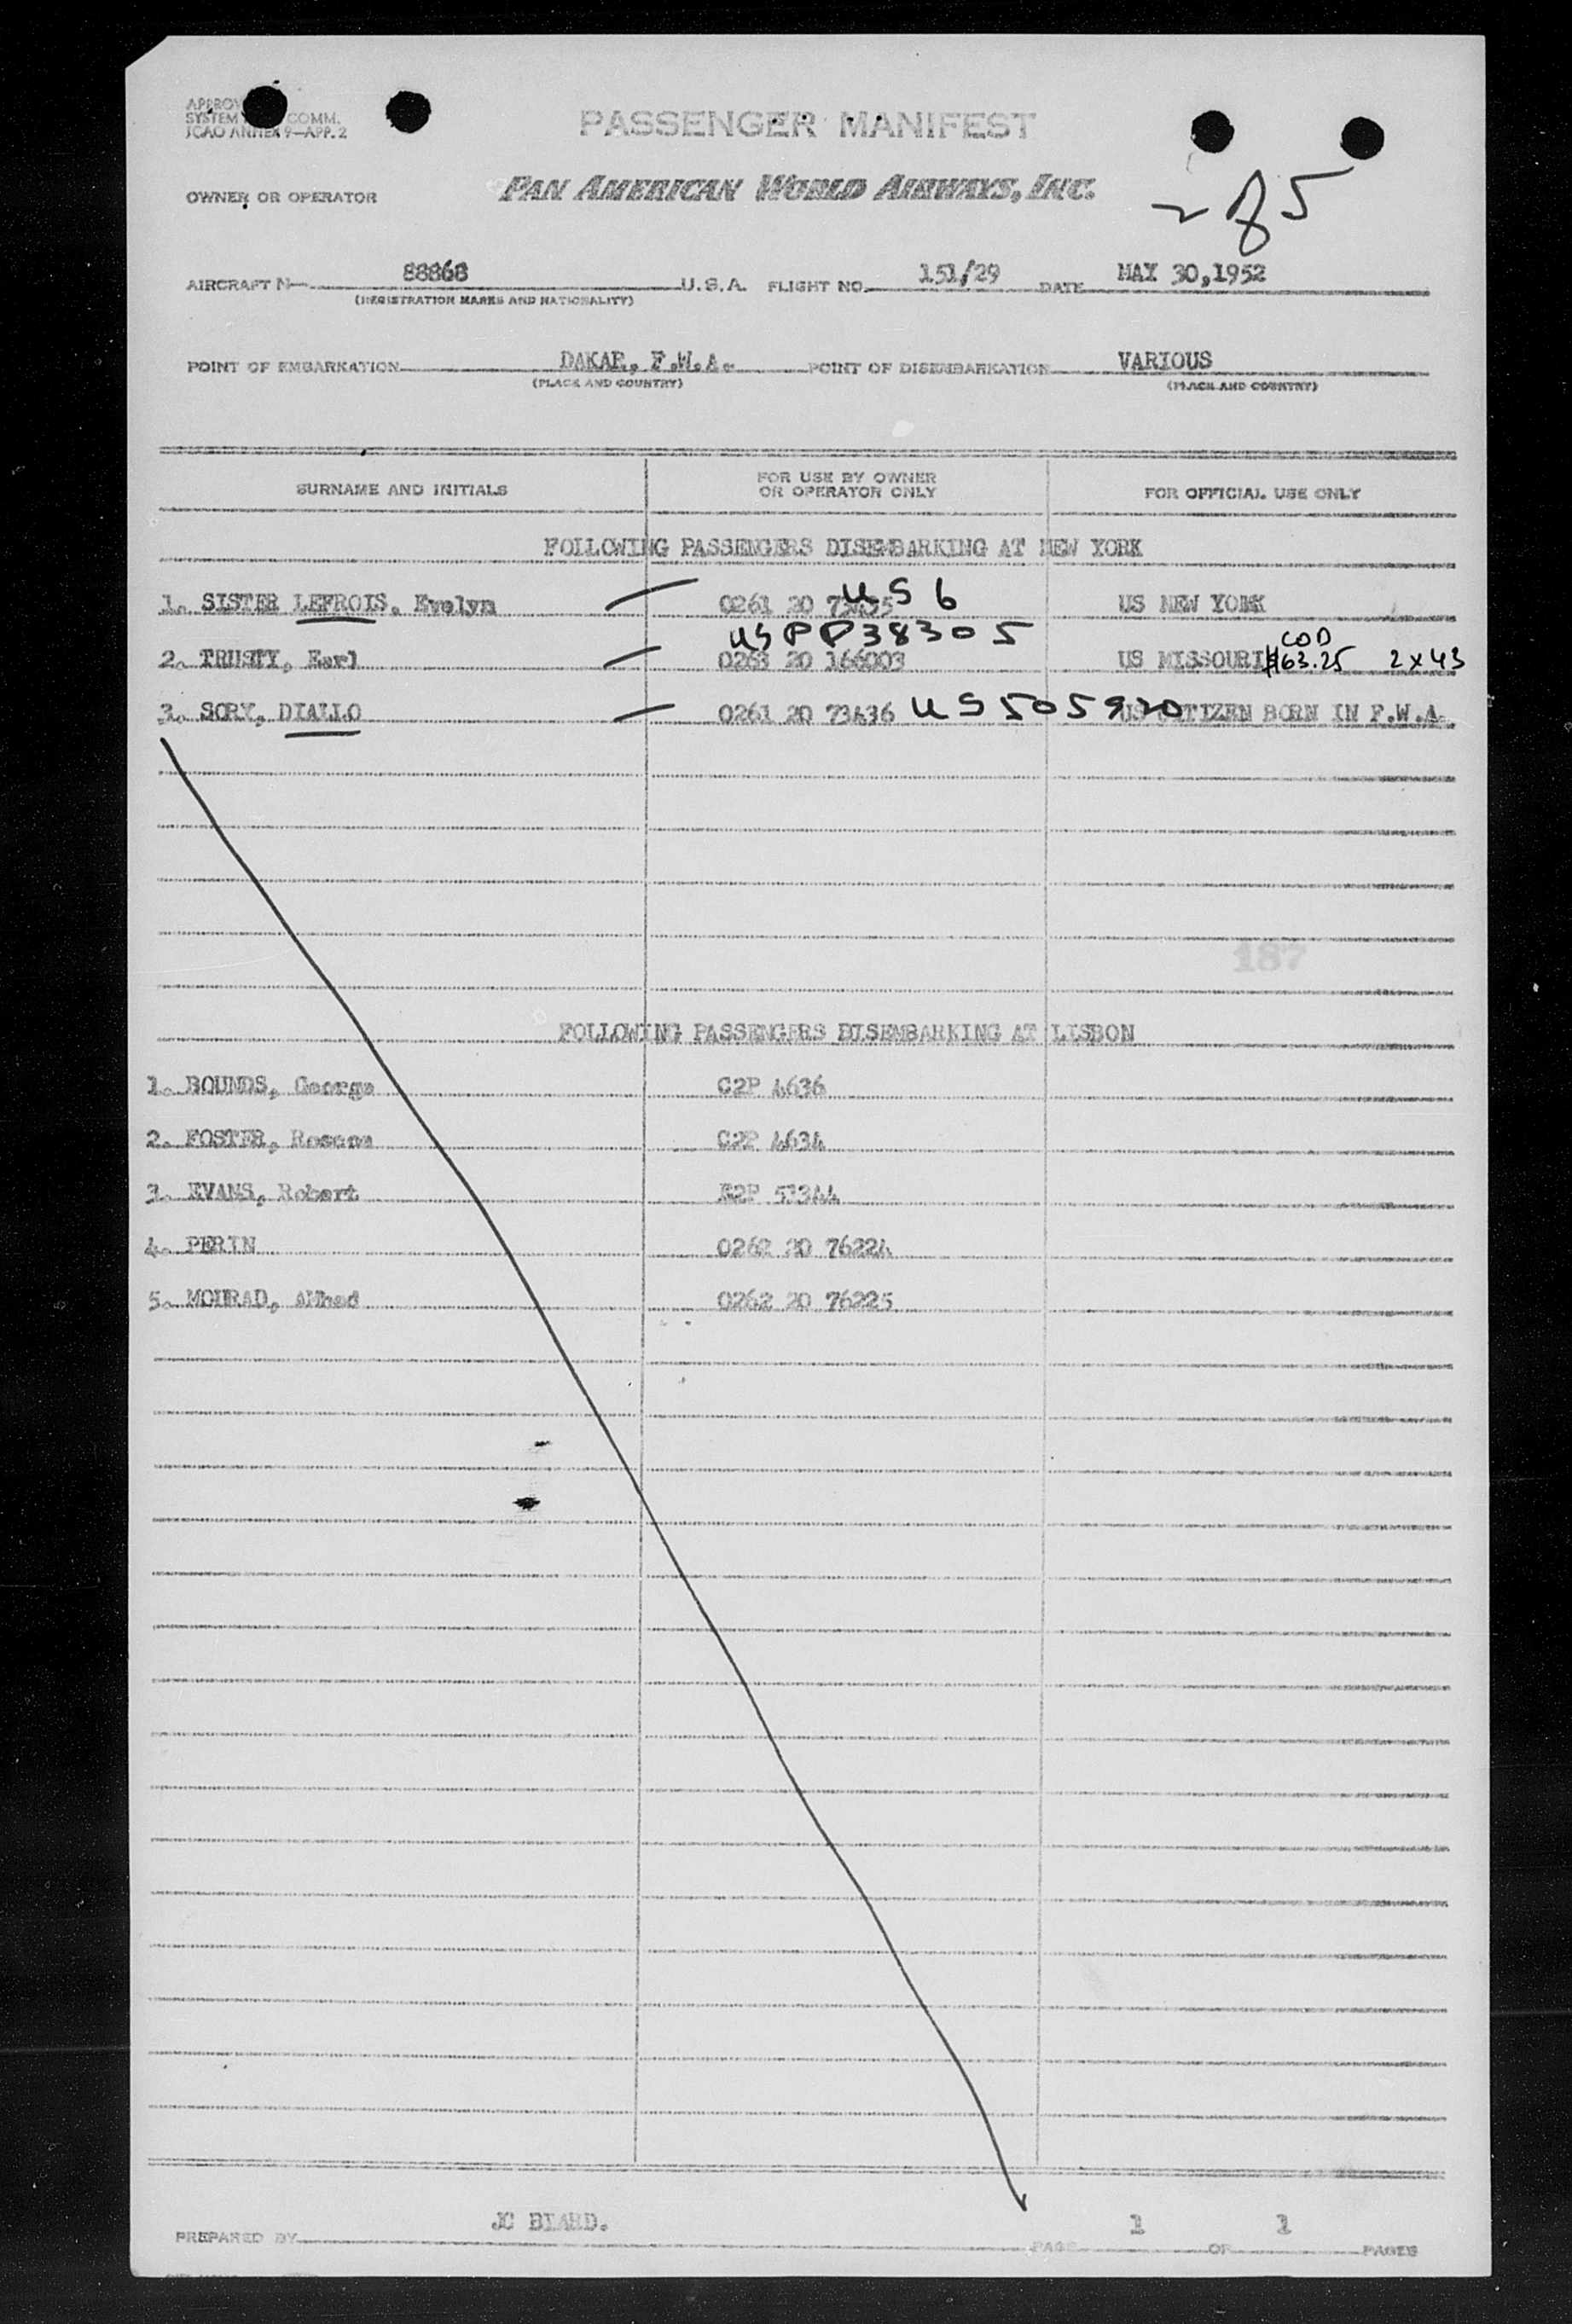 SYSTEM COMM.
ICAO ANNEX 9—APP. 2
PASSENGER MANIFEST
OWNER OR OPERATOR PAN AMERICAN WORLD AIRWAYS, INC.
2 of 5
AIRCRAFT N— 88868 U.S.A. FLIGHT NO. 151/29 DATE MAY 30,1952
(REGISTRATION MARKS AND NATIONALITY)
POINT OF EMBARKATION DAKAR, F.W.A. POINT OF DISEMBARKATION VARIOUS
(PLACE AND COUNTRY) (PLACE AND COUNTRY)
SURNAME AND INITIALS FOR USE BY OWNER OR OPERATOR ONLY FOR OFFICIAL USE ONLY
FOLLOWING PASSENGERS DISEMBARKING AT NEW YORK
US 6
1. SISTER LEFROIS, Evelyn 0261 20 73435 US NEW YORK
US PP38305 COD
2. TRUSTY, Earl 0263 20 166003 US MISSOURI $163.25 2x43
3. SORY, DIALLO 0261 20 73436 US 505920 US CITIZEN BORN IN F.W.A.
187
FOLLOWING PASSENGERS DISEMBARKING AT LISBON
1. BOUNDS, George C2P 4636
2. FOSTER, Roscoe C2P 4634
3. EVANS, Robert E2P 51344
4. PERIN 0262 20 76224
5. MOURAD, AMhed 0262 20 76225
PREPARED BY JC BYARD. PAGE 1 OF 1 PAGES